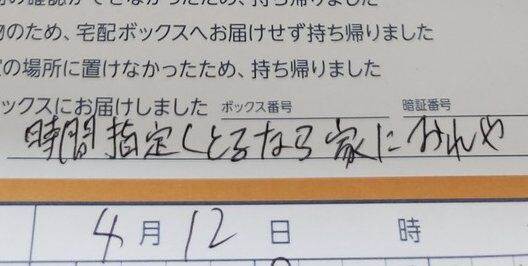 物のため、宅配ボックスへお届けせず持ち帰りました
の場所に置けなかったため、持ち帰りました
ックスにお届けしました ボックス番号 暗証番号
時間指定しとるなら家におれや
4月12日 時